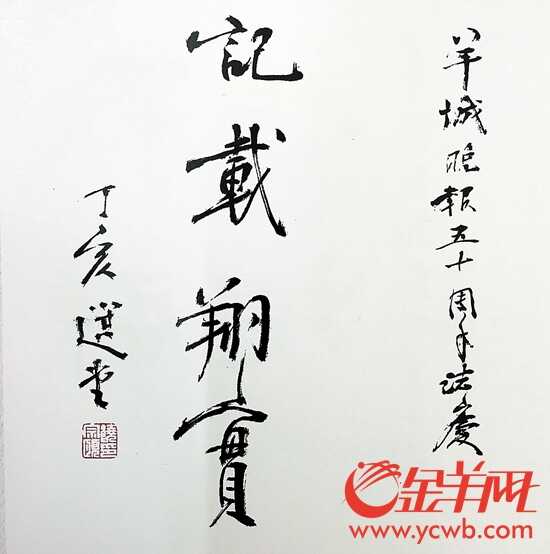 羊城晚報五十周年誌慶
記載翔實
丁亥選堂
金羊网
www.ycwb.com